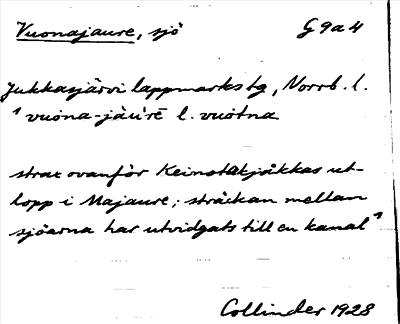 Vuonajaure, sjö G9a4
Jukkasjärvi lappmarks tg, Norrb. l.
"vuona-jàu̇rē l. vuotna
strax ovanför Keinotakjåkkas ut-
lopp i Majaure; sträckan mellan
sjöarna har utvidgats till en kanal"
Collinder 1928